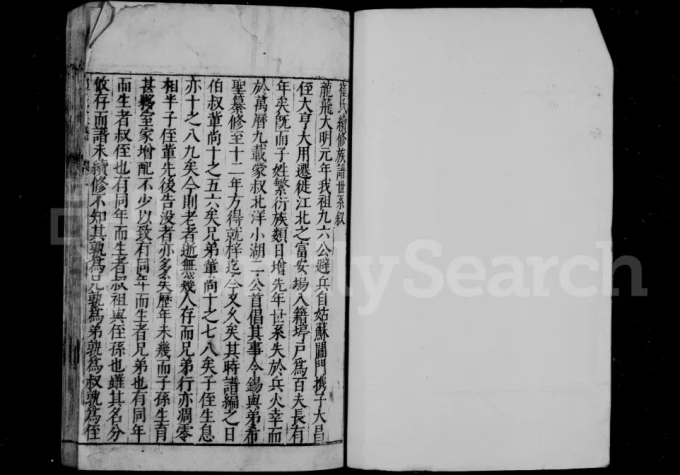 崔氏續修族譜世系叙
龍飛大明元年我祖九六公避兵自姑蘇閶門携子大昌
侄大亨大用遷徙江北之富安場入籍埣戶為百夫長有
年矣既而子姓繁衍族類日增先年世系失於兵火幸而
於萬曆九載蒙叔北洋小湖二公首倡其事今錫與弟希
聖纂修至十一年方得就梓迄今又久矣其時譜編之日
伯叔輩尚十之五六矣兄弟輩尚十之七八矣子侄生息
亦十之八九矣今則老者逝無幾人存而兄弟行亦凋零
相半子侄輩先後告没者亦多矣歷年未幾而子孫生育
甚夥室家增配不少以致有同年而生者兄弟也有同年
而生者叔侄也有同年而生者叔祖與侄孫也雖其名分
攸存而譜未續修不知其孰為兄孰為弟孰為叔孰為侄
FamilySearch